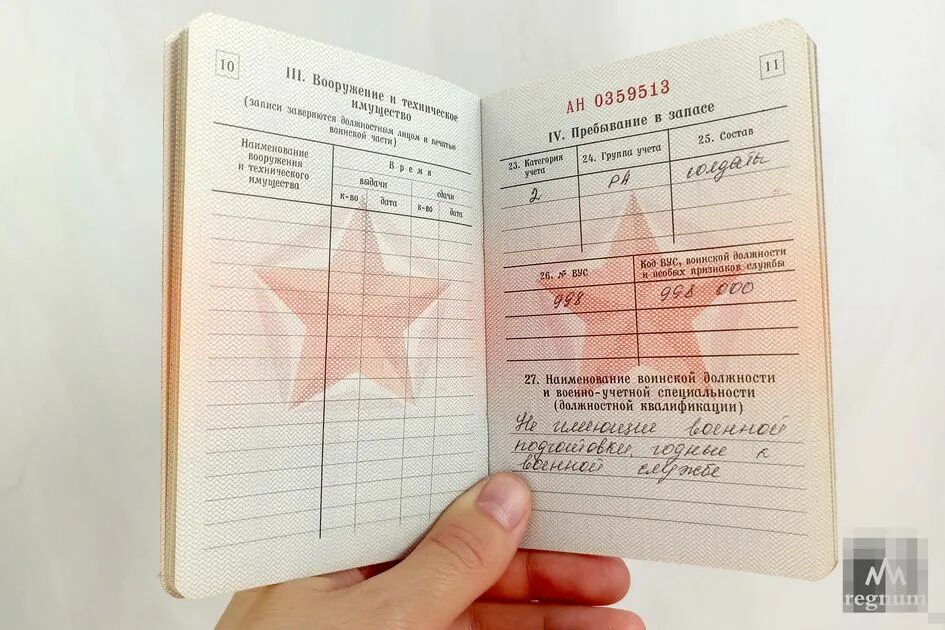 10
III. Вооружение и техническое
имущество
(записи заверяются должностным лицом и печатью
воинской части)
Наименование
вооружения
и технического
имущества
Время
выдачи
сдачи
к-во
дата
к-во
дата
11
АН 0359513
IV. Пребывание в запасе
23. Категория
учета
24. Группа учета
25. Состав
2
РА
солдаты
26. № ВУС
Код ВУС, воинской должности
и особых признаков службы
998
998 000
27. Наименование воинской должности
и военно-учетной специальности
(должностной квалификации)
Не имеющие военной
подготовки, годные к
военной службе
regnum